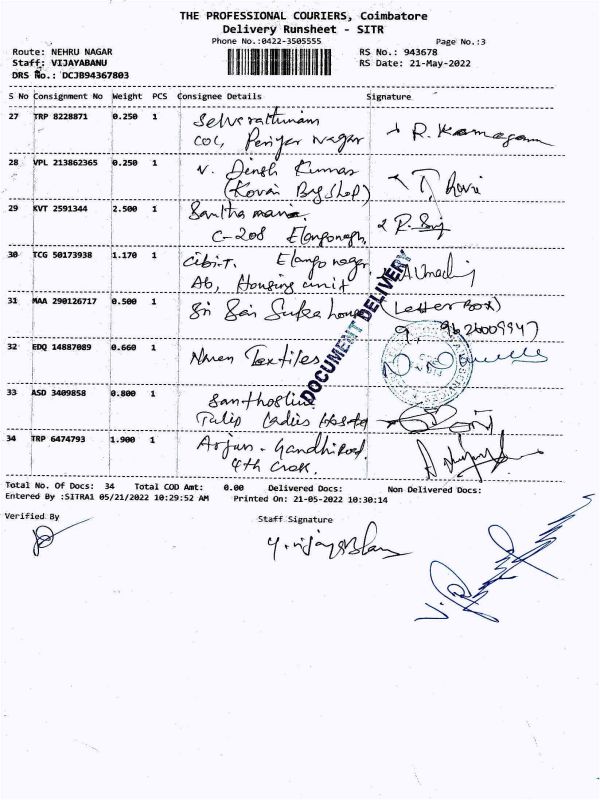 THE PROFESSIONAL COURIERS, Coimbatore
Delivery Runsheet - SITR
Phone No.:0422-3505555 Page No.:3
Route: NEHRU NAGAR RS No.: 943678
Staff: VIJAYABANU RS Date: 21-May-2022
DRS No.: DCJB94367803
S No Consignment No Weight PCS Consignee Details Signature
27 TRP 8228871 0.250 1 Selverathinam
COC, Periyar Nagar R.
28 VPL 213862365 0.250 1 V. Dinesh Kumar
(Kovai Bag Shop)
29 KVT 2591344 2.500 1 Santha
C-208
30 TCG 50173938 1.170 1 Elango nagar
A6, Housing unit
31 MAA 290126717 0.500 1 Sri Sai (Letter Box)
9626009947
32 EDQ 14887089 0.660 1 Textiles
DOCUMENT DELIVERY
33 ASD 3409858 0.800 1
Tulip Ladies Hostel
34 TRP 6474793 1.900 1 Arjun - Gandhi Road.
4th Cross.
Total No. Of Docs: 34 Total COD Amt: 0.00 Delivered Docs: Non Delivered Docs:
Entered By :SITRA1 05/21/2022 10:29:52 AM Printed On: 21-05-2022 10:30:14
Verified By Staff Signature